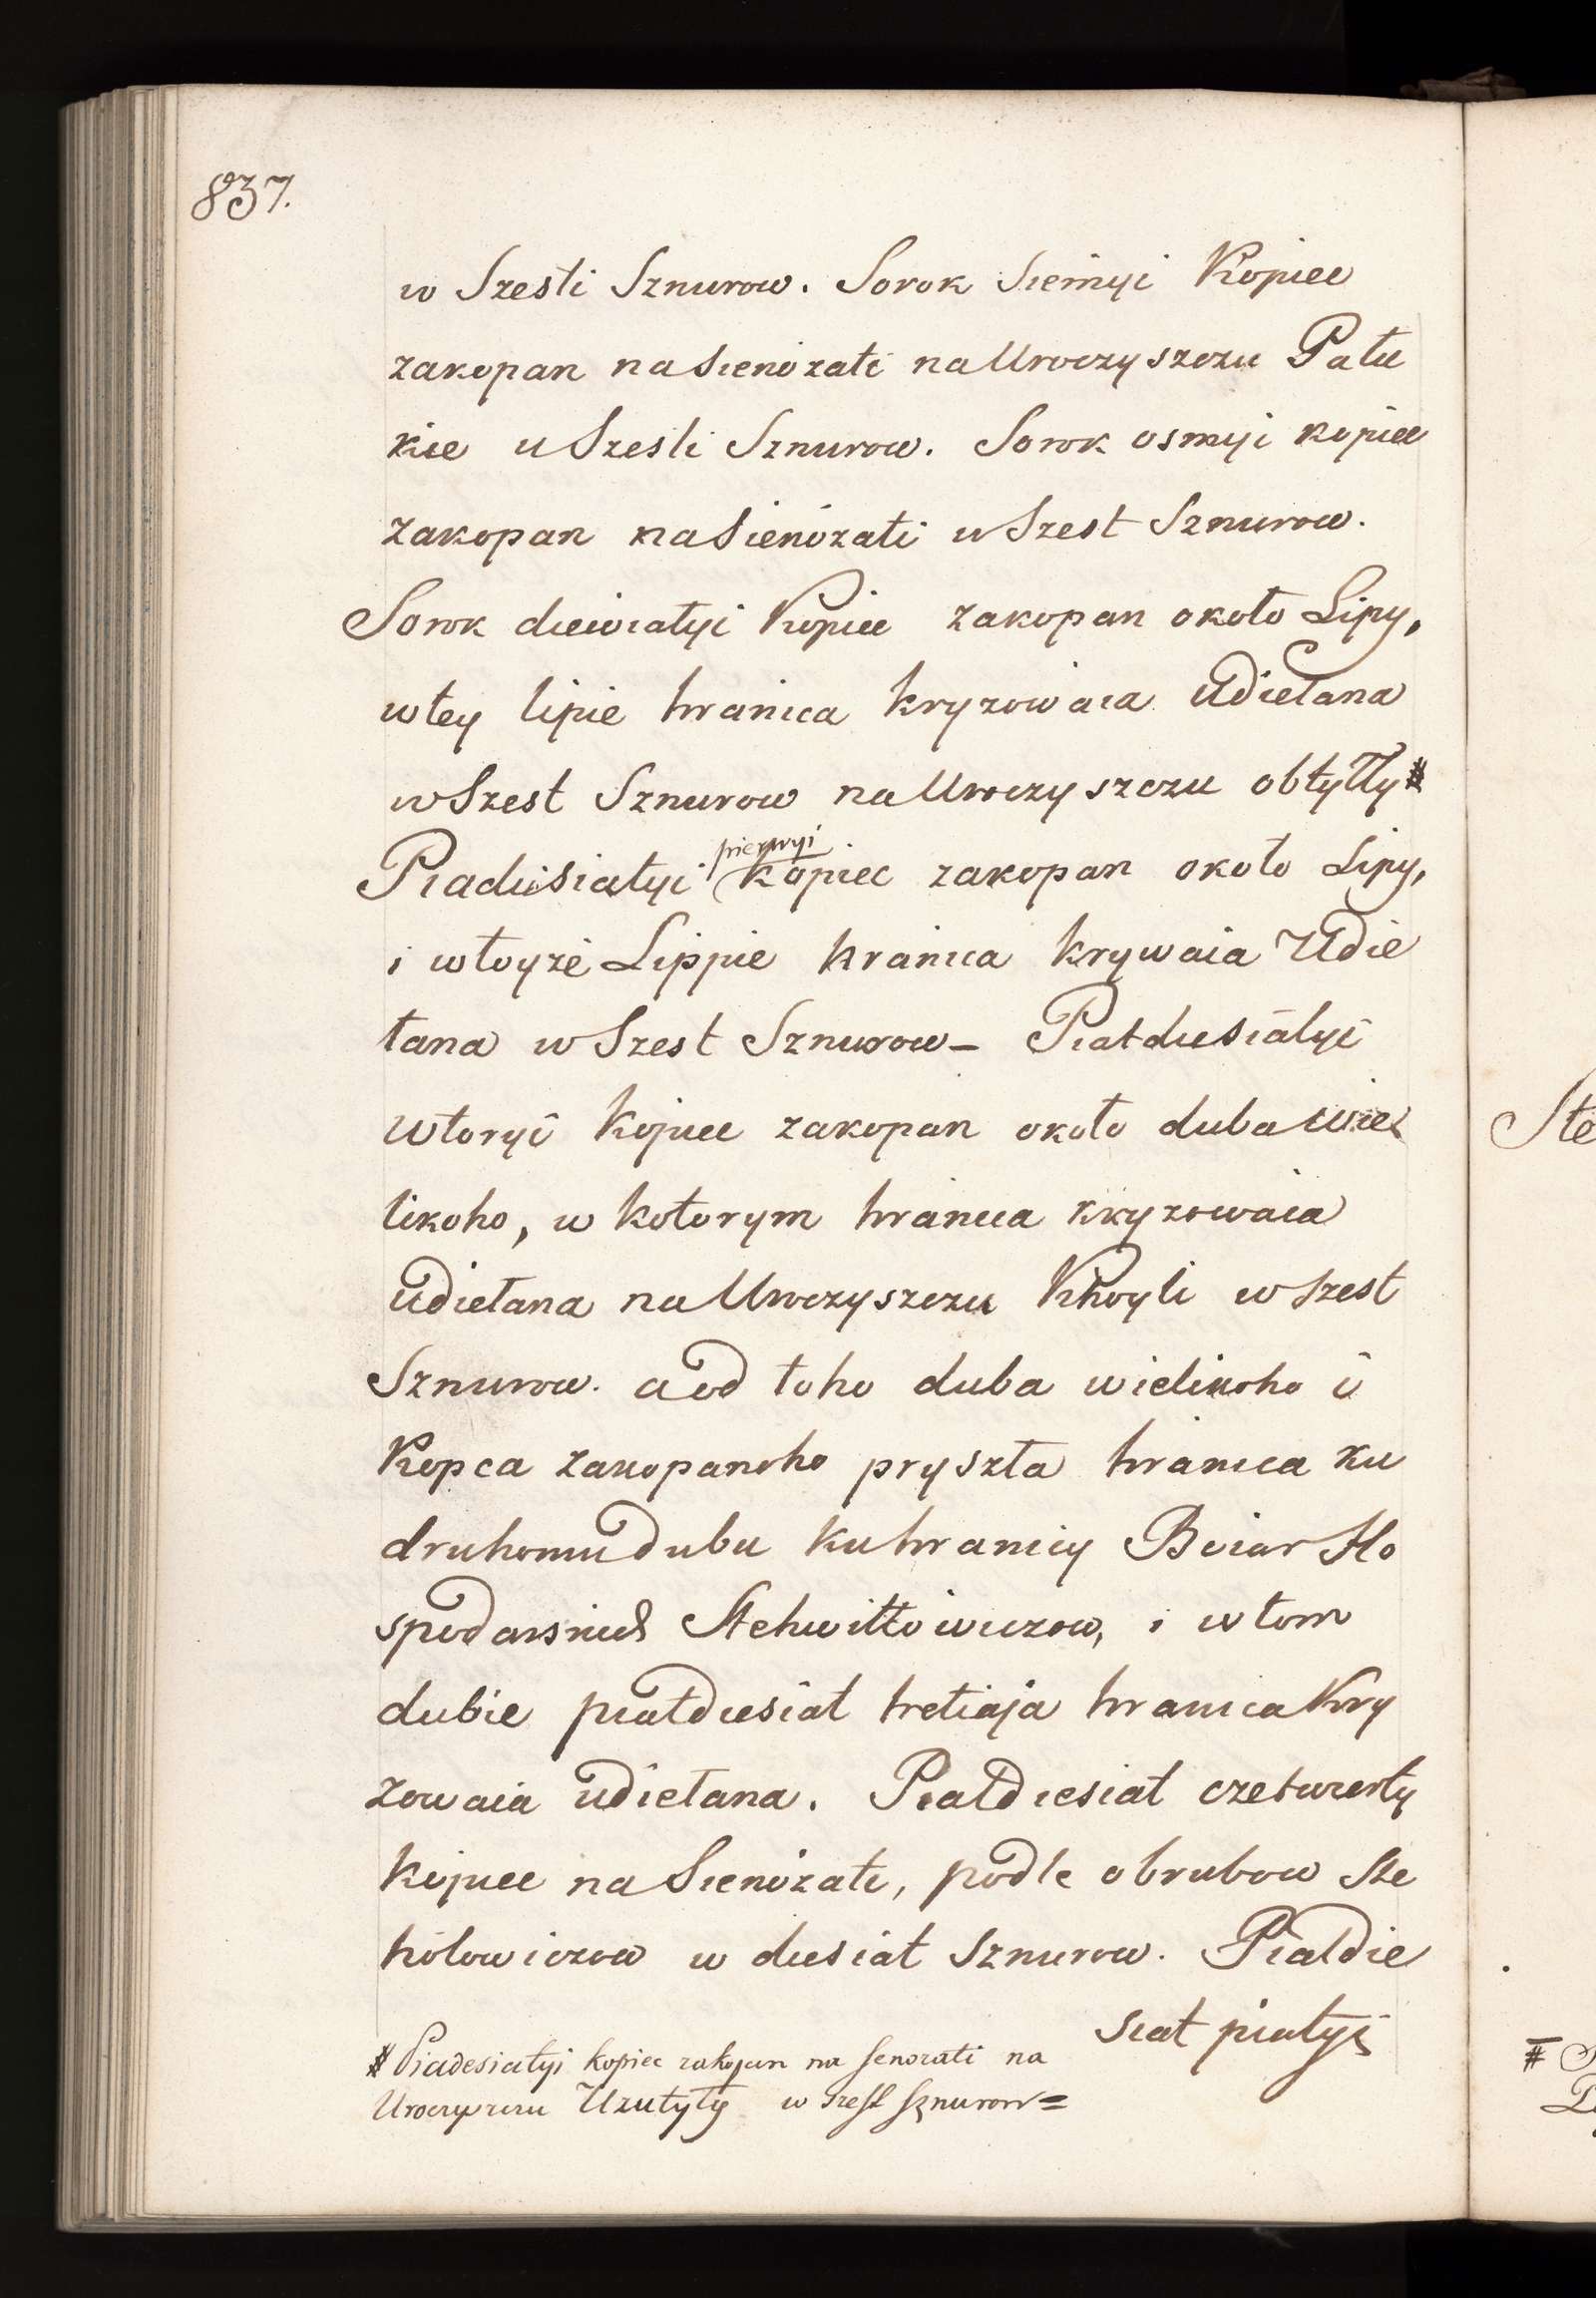 837.
w Szesti Sznurow. Sorok Siemyi Kopiec
zakopan na Sienożati na Uroczyszczu Pału
kie u Szesti Sznurow. Sorok osmyi kopiec
zakopan na Sienożati w Szest Sznurow.
Sorok diewiatyi Kopiec zakopan około Lipy,
w tey lipie hranica kryzowaia udiełana
w Szest Sznurow na Uroczyszczu obłytty #
Piadisiatyi pierwyi kopiec zakopan około Lipy,
i w toyże Lippie hranica krywaia Udie
łana w Szest Sznurow – Piatdiesiatyi
wtoryi Kopiec zakopan około duba wie
likoho, w kotorym hranica kryzowaia
udiełana na Uroczyszczu Khoyli w szest
Sznurow. a od toho duba wielikoho i
Kopca zakopanoho pryszła hranica ku
druhomu dubu ku hranicy Boiar Ho
spodarskich Stehwiłłowiczow, i w tom
dubie piatdiesiat tretiaja hranica Kry
zowaia udiełana. Piatdiesiat czetwerty
kopiec na Sienożati, podle obrubow Ste
hołowiczow w diesiat Sznurow. Piatdie
siat piatyi
# Piadesiatyi kopiec zakopan na senozati na
Uroczyszczu Uzutyty w szest sznurow =
Ste
#